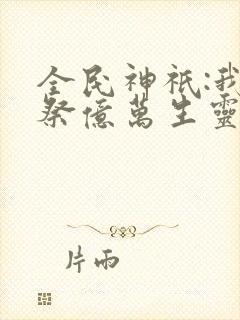 全民神祇:我
祭億萬生靈
片雨